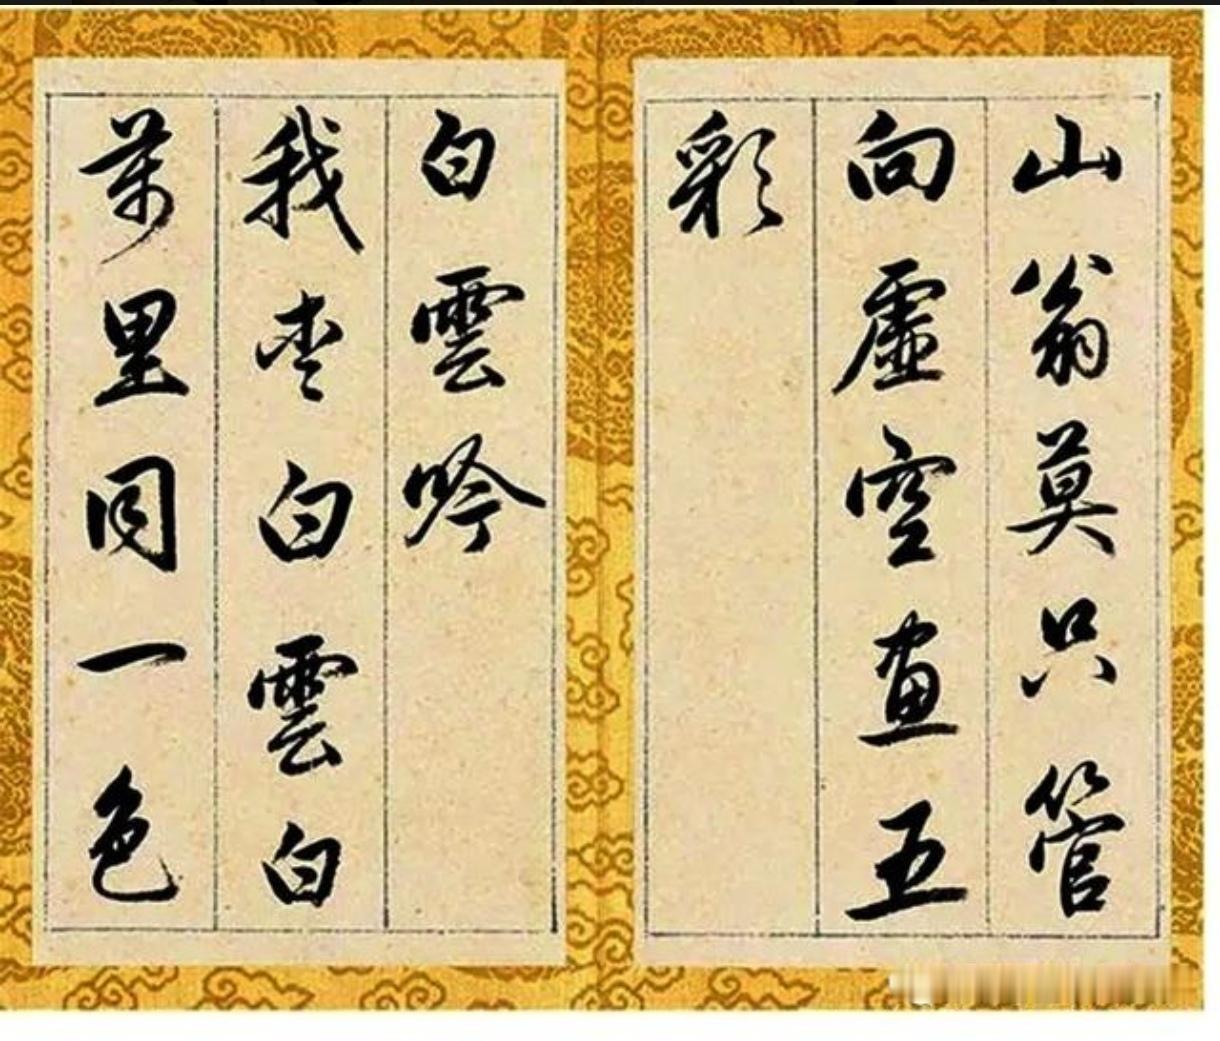 山翁莫只管
向虛空畫五
彩
白雲吟
我白雲白
萬里同一色